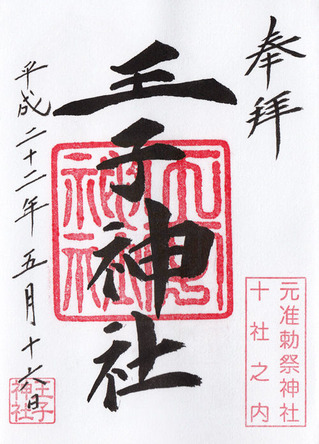 奉拝
元准勅祭神社
十社之内
王子神社
王子神社
平成二十二年五月十六日
王子
神社